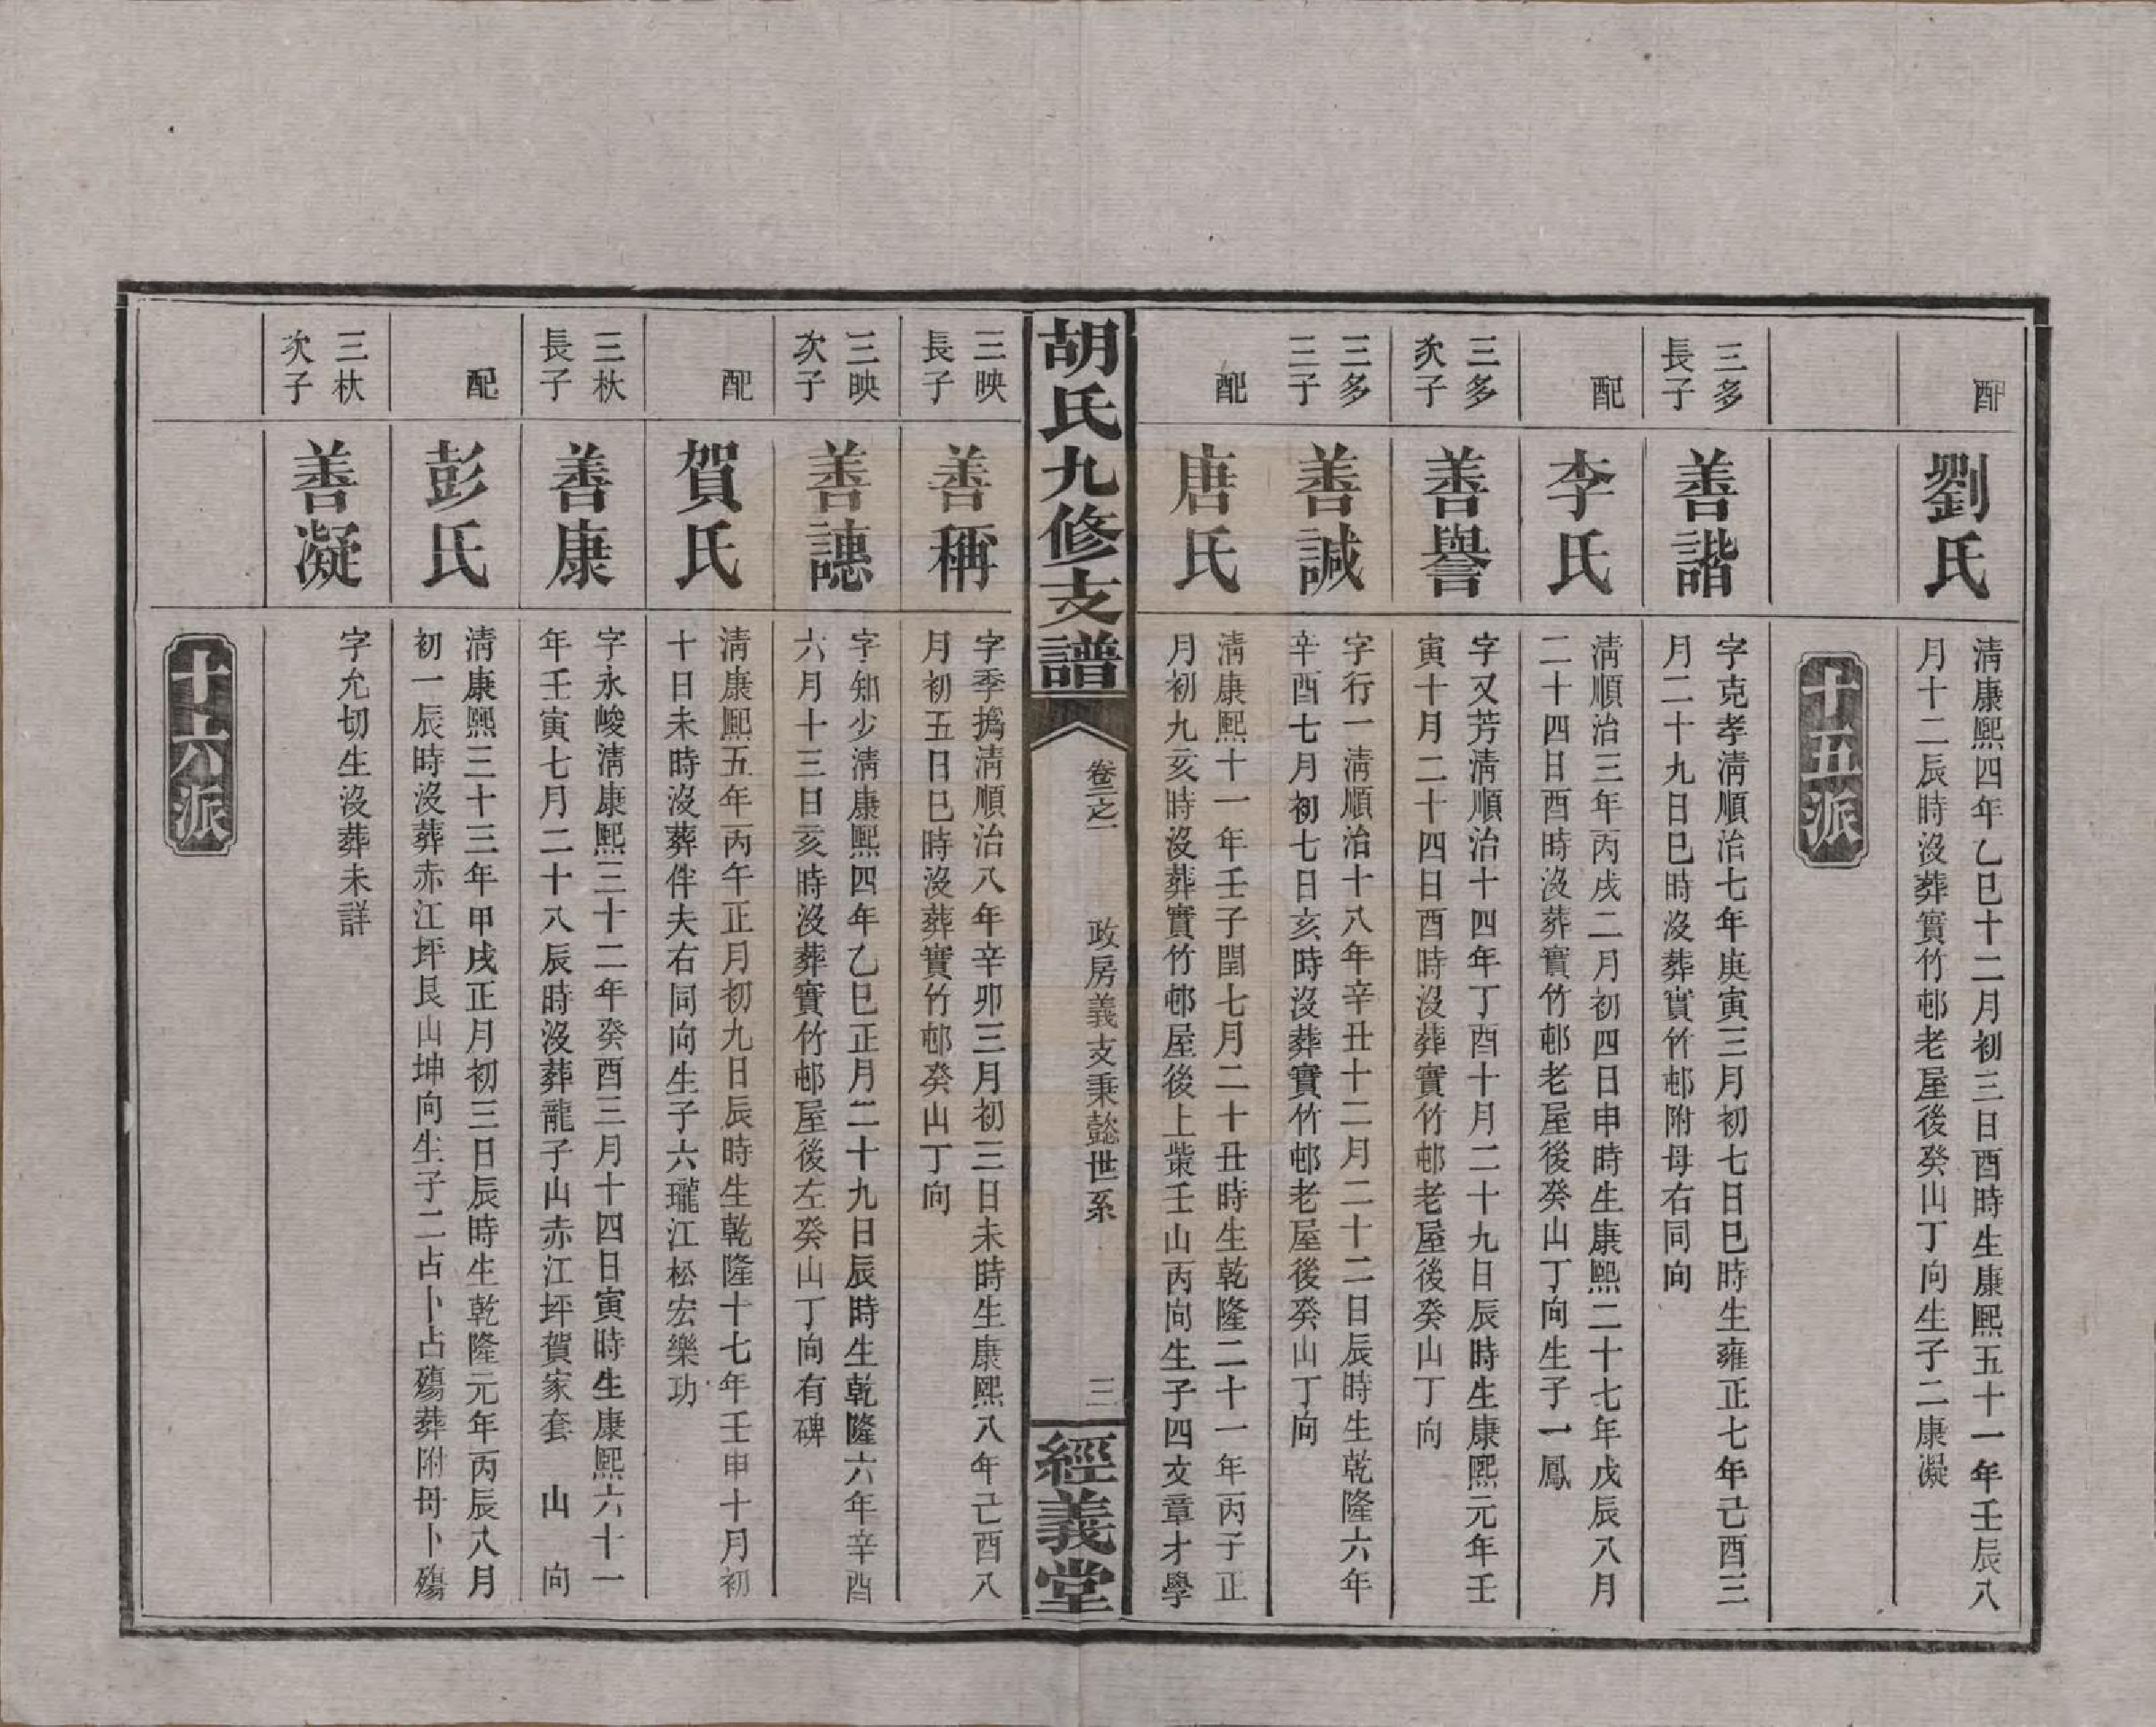 配
劉氏
清康熙四年乙巳十二月初三日酉時生康熙五十一年壬辰八
月十二辰時沒葬實竹邨老屋後癸山丁向生子二康凝
十五派
三多
長子
善諧
字克孝清順治七年庚寅三月初七日巳時生雍正七年己酉三
月二十九日巳時沒葬實竹邨附母右同向
配
李氏
清順治三年丙戌二月初四日申時生康熙二十七年戊辰八月
二十四日酉時沒葬實竹邨老屋後癸山丁向生子一鳳
三多
次子
善譽
字又芳清順治十四年丁酉十月二十九日辰時生康熙元年壬
寅十月二十四日酉時沒葬實竹邨老屋後癸山丁向
三多
三子
善誠
字行一清順治十八年辛丑十二月二十二日辰時生乾隆六年
辛酉七月初七日亥時沒葬實竹邨老屋後癸山丁向
配
唐氏
清康熙十一年壬子閏七月二十丑時生乾隆二十一年丙子正
月初九亥時沒葬實竹邨屋後上柴壬山丙向生子四文章才學
胡氏九修支譜
卷三之一
政房義支秉懿世系
三
經義堂
三映
長子
善稱
字季撝清順治八年辛卯三月初三日未時生康熙八年己酉八
月初五日巳時沒葬實竹邨癸山丁向
三映
次子
善譓
字知少清康熙四年乙巳正月二十九日辰時生乾隆六年辛酉
六月十三日亥時沒葬實竹邨屋後左癸山丁向有碑
配
賀氏
清康熙五年丙午正月初九日辰時生乾隆十七年壬申十月初
十日未時沒葬伴夫右同向生子六瓏江松宏樂功
三杕
長子
善康
字永峻清康熙三十二年癸酉三月十四日寅時生康熙六十一
年壬寅七月二十八辰時沒葬龍子山赤江坪賀家套　山　向
配
彭氏
清康熙三十三年甲戌正月初三日辰時生乾隆元年丙辰八月
初一辰時沒葬赤江坪艮山坤向生子二占卜占殤葬附毋卜殤
三杕
次子
善凝
字允切生沒葬未詳
十六派